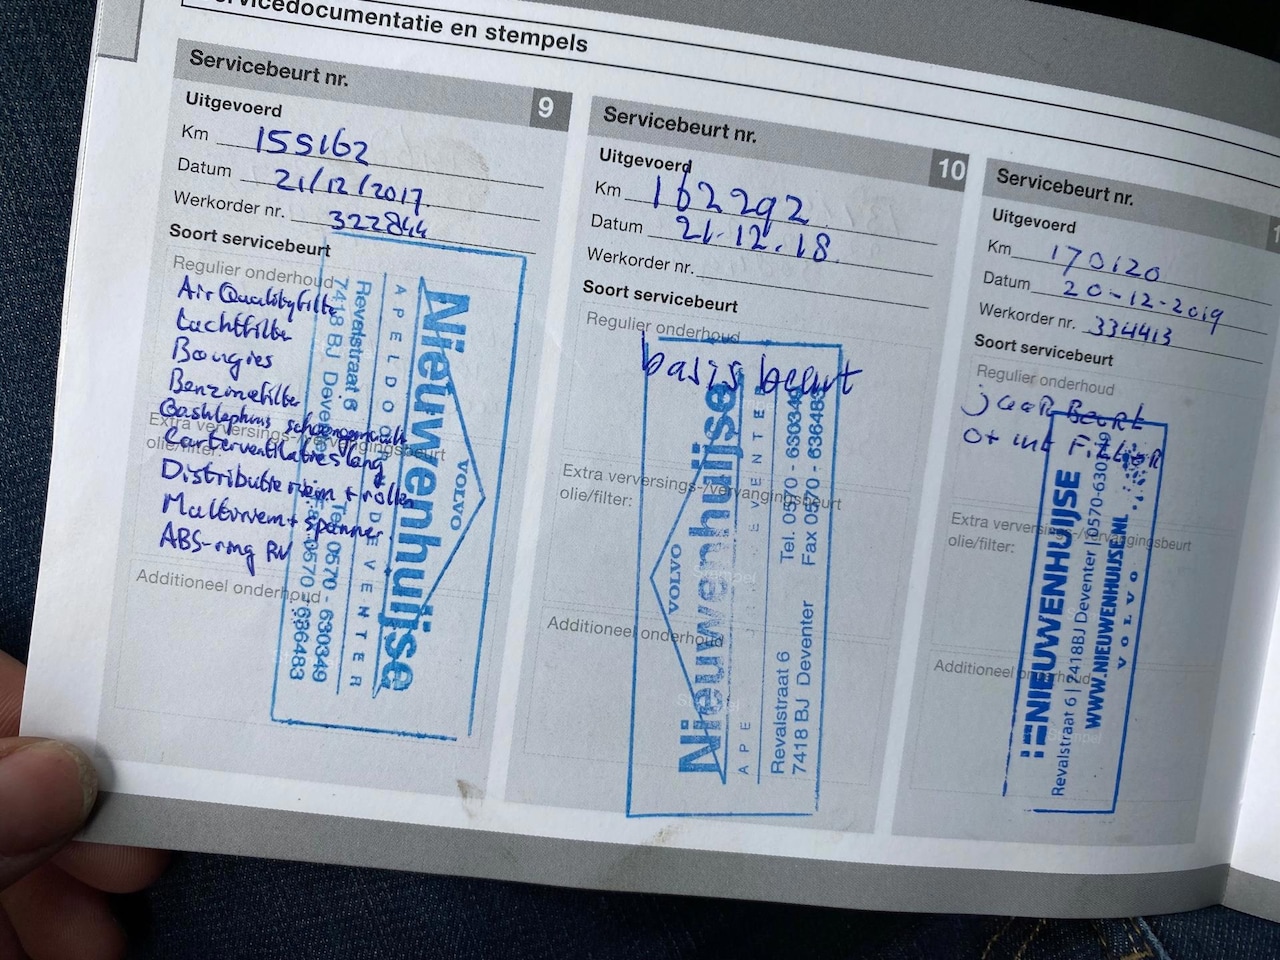 servicedocumentatie en stempels
Servicebeurt nr. 9
Uitgevoerd
Km 155162
Datum 21/12/2017
Werkorder nr. 322844
Soort servicebeurt
Regulier onderhoud
Air Quality filter
Luchtfilter
Bougies
Benzinefilter
Gasklephuis schoongemaakt
Extra verversings-/vervangingsbeurt
olie/filter:
Carterventilatieslang
Distributieriem + rollen
Multiriem + spanner
ABS-ring RV
Additioneel onderhoud
Nieuwenhuijse
VOLVO
APELDOORN
DEVENTER
Revelstraat 6
7418 BJ Deventer
Tel. 0570 - 630349
Fax 0570 - 636483
Servicebeurt nr. 10
Uitgevoerd
Km 162292
Datum 21.12.18
Werkorder nr.
Soort servicebeurt
Regulier onderhoud
basis beurt
Extra verversings-/vervangingsbeurt
olie/filter:
Additioneel onderhoud
Stempel
VOLVO
Nieuwenhuijse
DEVENTER
Revalstraat 6
7418 BJ Deventer
Tel. 0570 - 630349
Fax 0570 - 636483
Servicebeurt nr.
Uitgevoerd
Km 170120
Datum 20-12-2019
Werkorder nr. 334413
Soort servicebeurt
Regulier onderhoud
jaaR Beurt
Extra verversings-/vervangingsbeurt
olie/filter:
Additioneel onderhoud
Stempel
NIEUWENHUIJSE
Revalstraat 6 | 7418BJ Deventer | 0570-630349
WWW.NIEUWENHUIJSE.NL
VOLVO